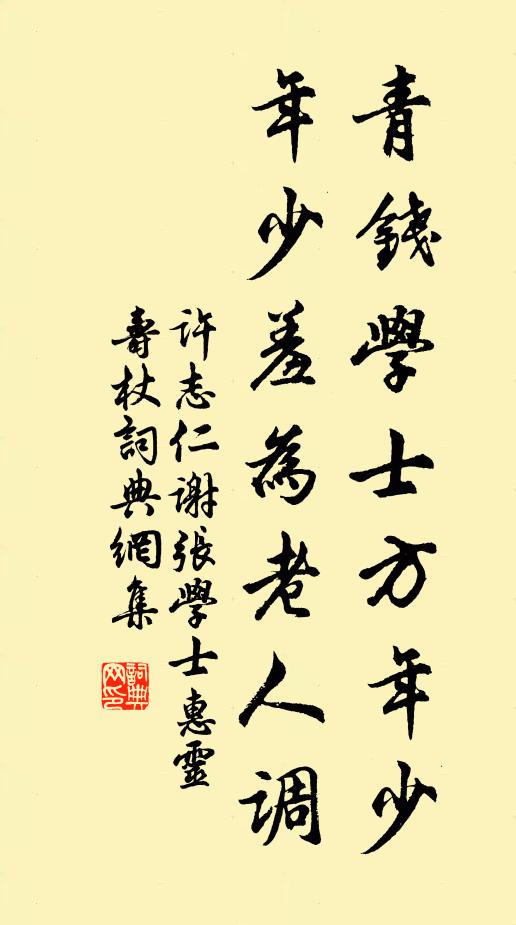 青錢學士方年少
年少羞為老人調
許志仁謝張學士惠靈
壽杖詞典網集
詞典
网印